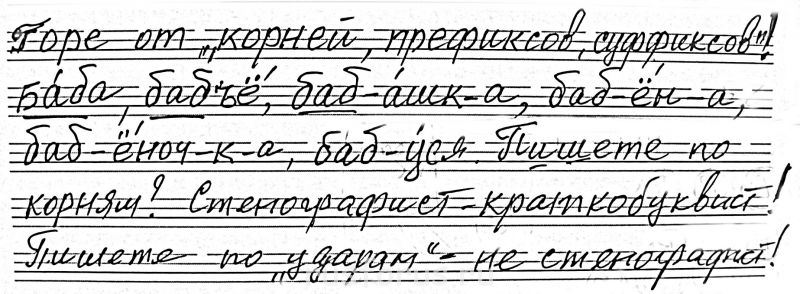 Горе от „корней, префиксов, суффиксов"!
Ба́ба, бабъё́, баб-а́шк-а, баб-ён-а,
баб-ё́ноч-к-а, баб-у́ся. Пишете по
корням? Стенографист-краткобуквист!
Пишете по „ударам“- не стенографист!